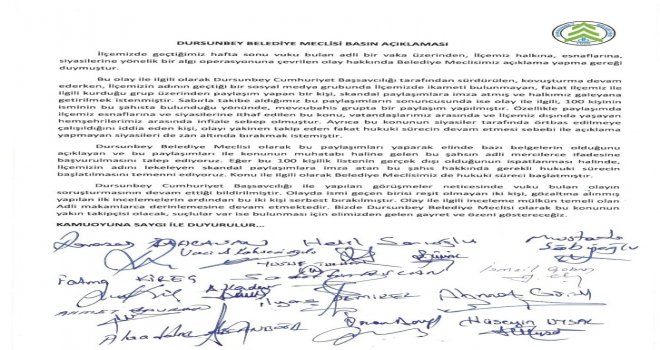 DURSUNBEY BELEDİYE MECLİSİ BASIN AÇIKLAMASI
İlçemizde geçtiğimiz hafta sonu vuku bulan adli bir vaka üzerinden, ilçemiz halkına, esnaflarına,
siyasilerine yönelik bir algı operasyonuna çevrilen olay hakkında Belediye Meclisimiz açıklama yapma gereği
duymuştur.
Bu olay ile ilgili olarak Dursunbey Cumhuriyet Başsavcılığı tarafından sürdürülen, kovuşturma devam
ederken, İlçemizin adının geçtiği bir sosyal medya grubunda ilçemizde ikameti bulunmayan, fakat ilçemiz ile
ilgili kurduğu grup üzerinden paylaşım yapan bir kişi, skandal paylaşımıza imza atmış ve halkımız galeyana
getirilmek istenmiştir. Sabırla takibe aldığımız bu paylaşımların sonucunda ise olay ile ilgili, 100 kişinin
isminin bu şahısta bulunduğu yönünde, mevzubahis grupta bir paylaşım yapılmıştır. Özellikle paylaşımda
ilçemiz esnaflarına ve siyasilerine ithaf edilen bu konu, vatandaşlarımız arasında ve ilçemiz dışında yaşayan
hemşehrilerimiz arasında infiale sebep olmuştur. Ayrıca bu konunun siyasiler tarafında örtbas edilmeye
çalışıldığını iddia eden kişi, olayı yakinen takip eden fakat hukuki sürecin devam etmesi sebebi ile açıklama
yapmayan siyasileri de zan altında bırakmak istemiştir.
Dursunbey Belediye Meclisi olarak bu paylaşımları yaparak elinde bazı belgelerin olduğunu
açıklayan ve bu paylaşımları ile konunun muhatabı haline gelen bu şahsın adli mercilerce ifadesine
başvurulmasını talep ediyoruz. Eğer bu 100 kişilik listenin gerçek dışı olduğunun ispatlanması halinde,
ilçemizin adını lekeleyen skandal paylaşımlara imza atan bu şahıs hakkında gerekli hukuki sürecin
başlatılmasını temenni ediyoruz. Konu ile ilgili olarak Belediye Meclisimiz de hukuki süreci başlatmıştır.
Dursunbey Cumhuriyet Başsavcılığı ile yapılan görüşmeler neticesinde vuku bulan olayın
soruşturmasının devam ettiği bildirilmiştir. Olayda ismi geçen birisi reşit olmayan iki kişi, gözaltına alınmış
yapılan ilk incelemelerin ardından bu iki kişi serbest bırakılmıştır. Olay ile ilgili inceleme mülkün temeli olan
Adli makamlarca derinlemesine devam etmektedir. Bizde Dursunbey Belediye Meclisi olarak bu konunun
yakın takipçisi olacak, suçlular var ise bulunması için elimizden gelen gayret ve özeni göstereceğiz.
KAMUOYUNA SAYGI İLE DUYURULUR...
Halil
Mustafa
Fatma KİREÇ
DEMİREL
Ahmet
Hüseyin UYSAL